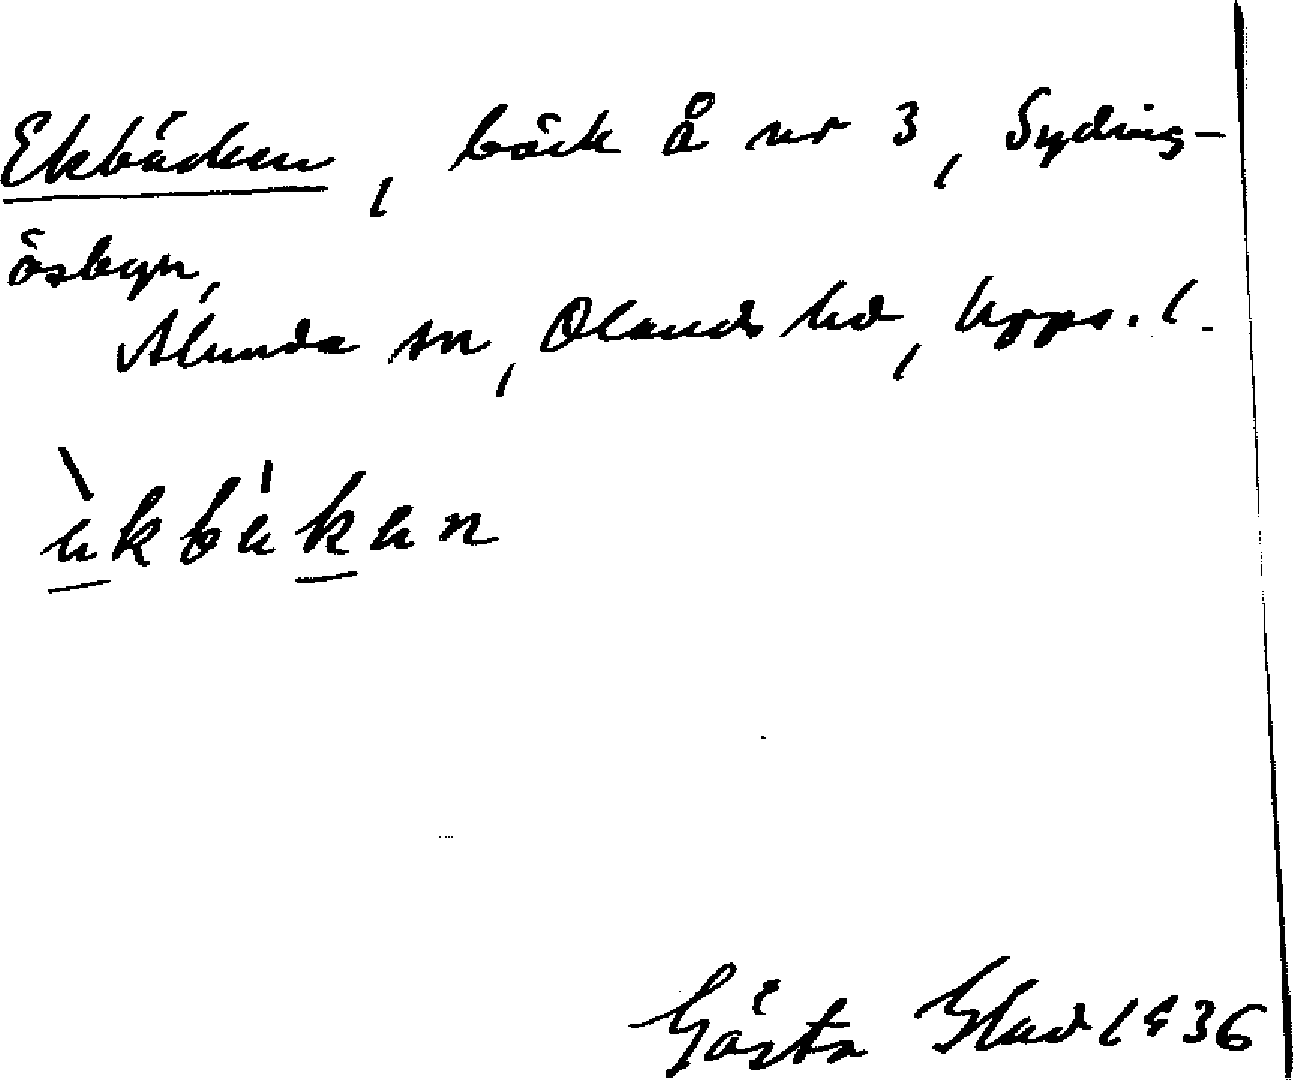 Ekbäcken, bäck å nr 3, Syding-
ösbyn,
Alunda sn, Olands hd, Upps. l.
Gösta Glad 1936